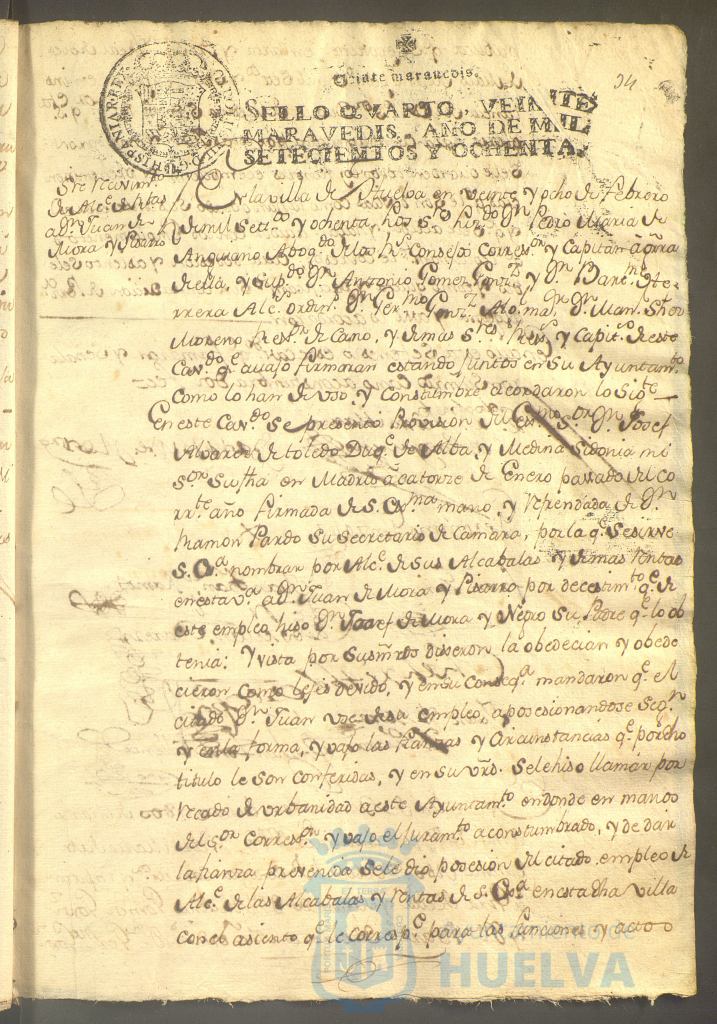 94
Veinte maravedis.
SELLO QVARTO, VEINTE
MARAVEDIS, AÑO DE MIL
SETECIENTOS Y OCHENTA.
HISPANIAR. REX
de Alc.e de Rtas
a Dn Juan de
Mora y Pisarro
En la villa de Huelva en veinte y ocho de Febrero
de mil Setto y ochenta, los Sres Dn Pedro Maria de
Anguiano Abogdo de los Rs Consejos Corresor y Capitan a gra
de ella, y Dn Antonio Gomez y Dn Barme He-
rrera Alces ordins Dn Germo Alg. mar. Dn Manl
Moreno de Cano, y demas Sres y Capits de este
Cavdo qe avajo firmaran estando juntos en Su Ayuntamto
Como lo han de uso, y Constumbre acordaron lo Sigte
En este Cavdo Se presentó Provision del Exmo Sor Dn Josef
Alvares de toledo Duqe de Alba, y Medina Sidonia mi
Sor Su fha en Madrid á catorze de Enero pasado del co-
rrte año firmada de S. Exa mano, y Refrendada de Dn
Ramon Pardo Su Secretario de Camara, por la qe Se sirve
S. Exa nombrar por Alce de Sus Alcabalas y demas Rentas
en esta Va a Dn Juan de Mora y Pisarro por decestimto qe de
este empleo hiso Dn Josef de Mora y Negro Su Padre qe lo ob-
tenia; Y vista por Susmrds dixeron la obedecian y obede-
cieron como les es devido, y en su Conseqa mandaron qe el
citado Dn Juan use de su empleo, aposesionandose Segn
y en la forma, y vajo las fianzas y Circunstancias qe por dho
titulo le Son conferidas, y en su vrd. Se le hiso llamar por
Recado de urbanidad a este Ayuntamto en donde en manos
del Sor Corresor y vajo el Juramto acostumbrado, y de dar
la fianza prevenida Se le dio posesion del citado empleo de
Alce de las Alcabalas y Rentas de S. Exa en esta dha villa
con el asiento qe le correspe para las funciones y actos
HUELVA